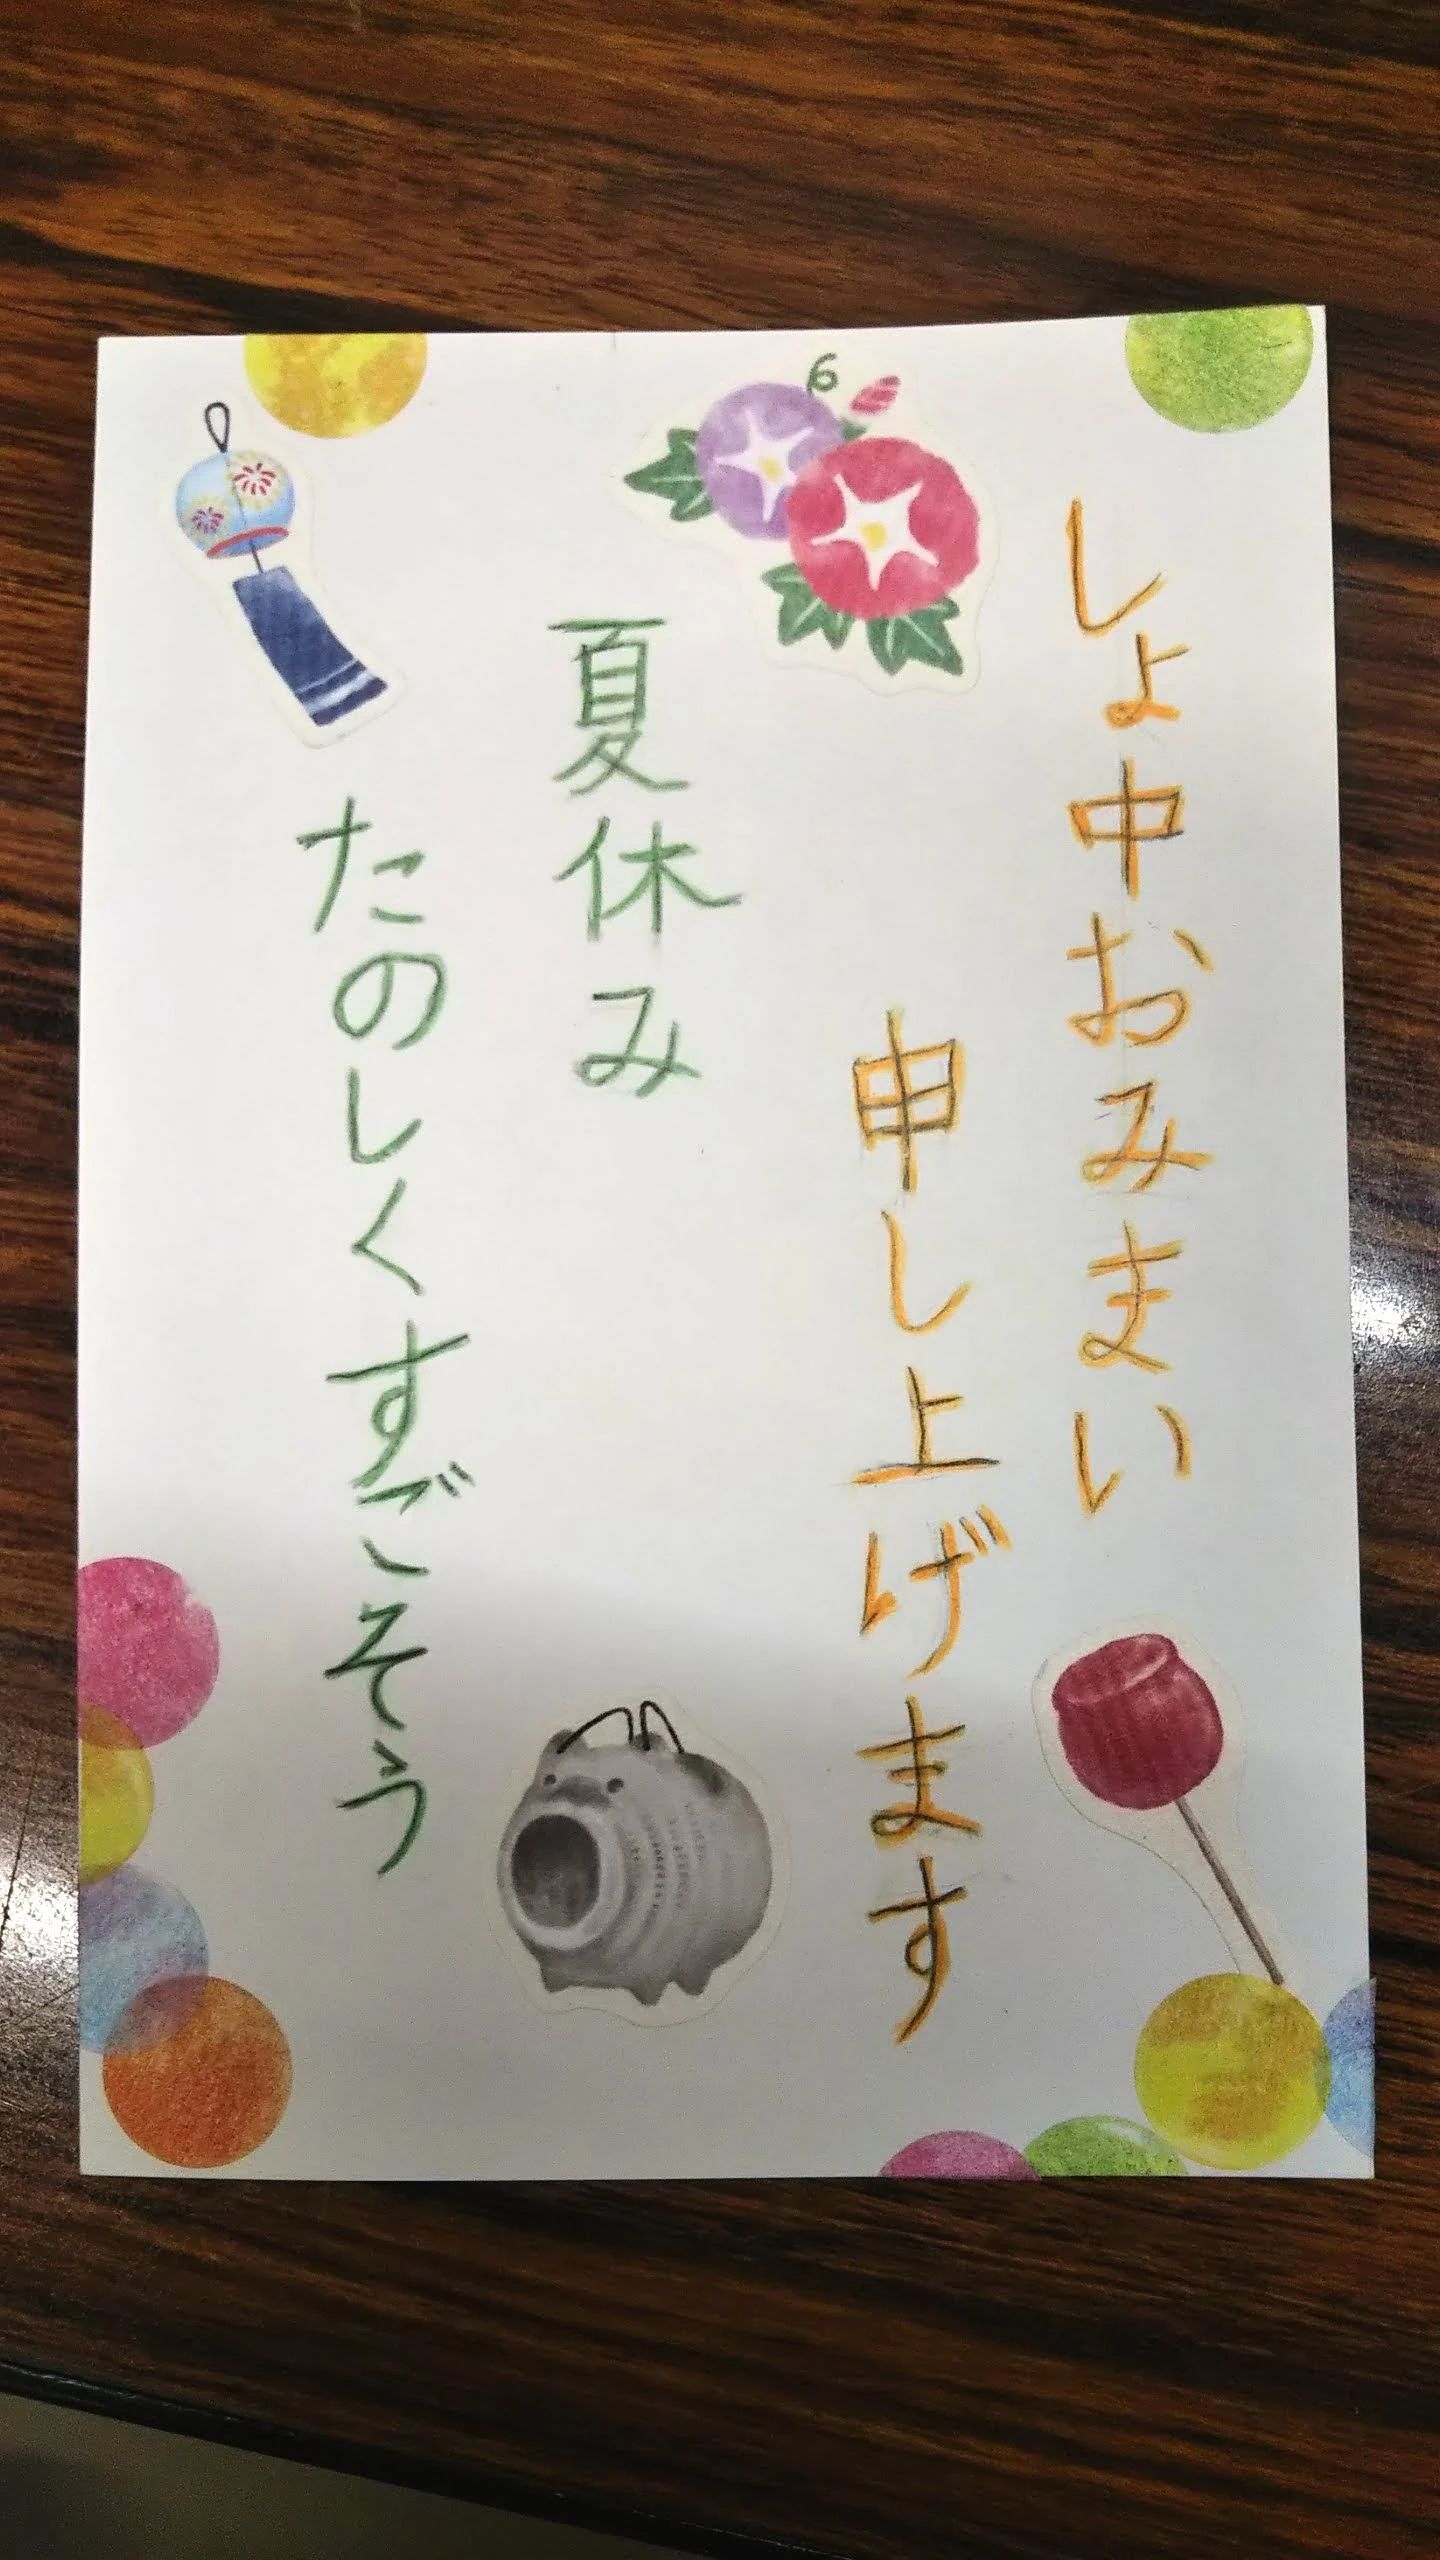 しょ中おみまい
申し上げます
夏休み
たのしくすごそう